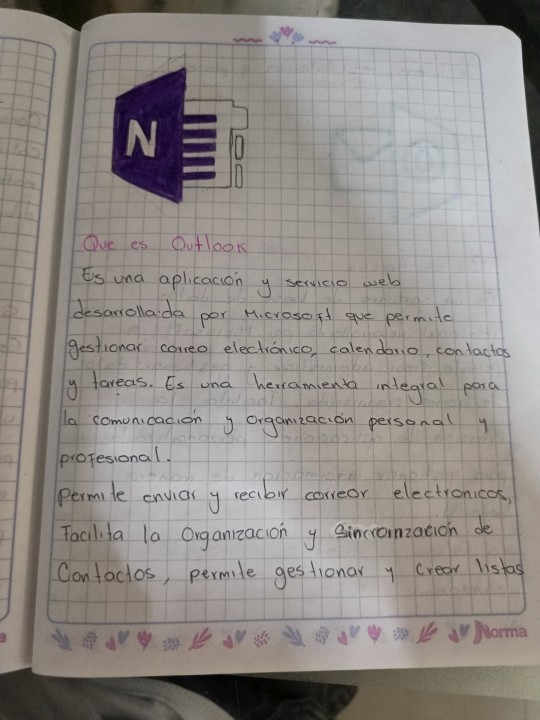 N
Que es Outlook
Es una aplicación y servicio web
desarrollada por Microsoft que permite
gestionar correo electrónico, calendario, contactos
y tareas. Es una herramienta integral para
la comunicación y Organización personal y
profesional.
Permite enviar y recibir correor electronicos,
Facilita la Organización y Sincroinzación de
Contactos, permite gestionar y Crear listas
Norma